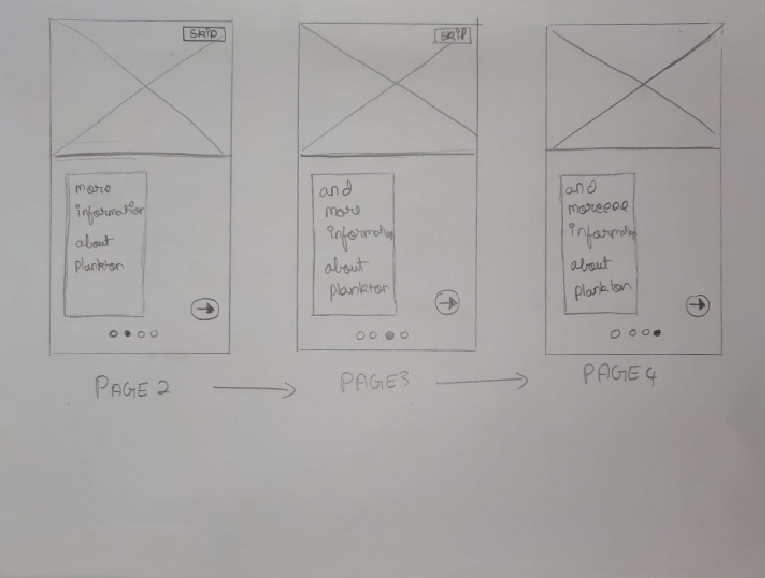 SKIP
more
information
about
plankton
PAGE 2
SKIP
and
more
information
about
plankton
PAGE3
and
moreeee
information
about
plankton
PAGE 4